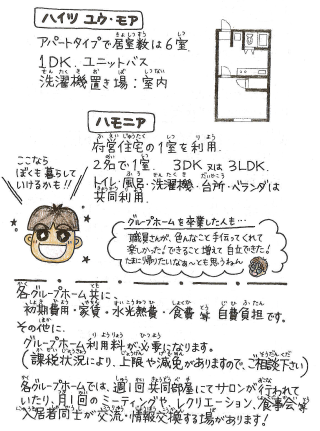 ハイツ ユウ・モア
アパートタイプで居室数は6室.
1DK. ユニットバス
洗濯機置き場：室内
ハモニア
府営住宅の1室を利用.
2名で1室. 3DK 又は 3LDK.
トイレ・風呂・洗濯機・台所・ベランダは
共同利用.
ここなら
ぼくも暮らして
いけるかも!!
グループホームを卒業した人も…
職員さんが、色んなこと手伝ってくれて
楽しかった!できること増えて自立できた!
たまに帰りたいなぁ〜とも思うねん
各グループホーム共に、
初期費用・家賃・水光熱費・食費等 自費負担です。
その他に、
グループホーム利用料が必要になります。
(課税状況により、上限や減免がありますので、ご相談下さい)
各グループホームでは、週1回共同部屋にてサロンが行われて
いたり、月1回のミーティングや、レクリエーション、食事会等
入居者同士が交流・情報交換する場があります!